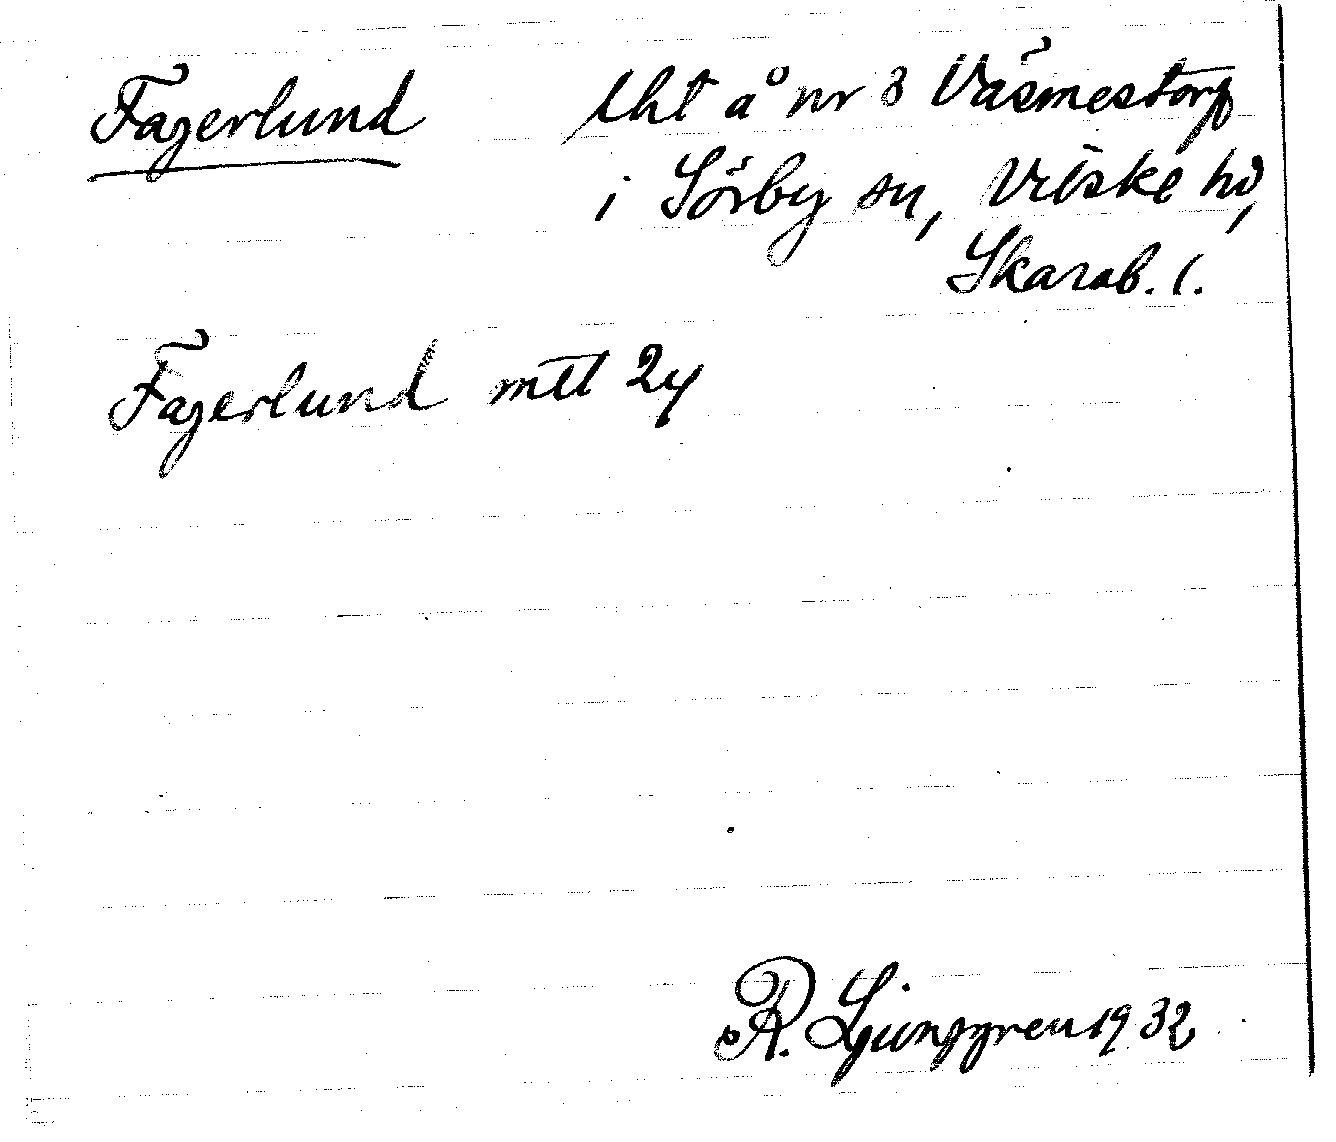 Fagerlund lht å nr 3 Väsmestorp
i Sörby sn, Vilske hd,
Skarab. l.
Fagerlund mtl 24
R. Ljunggren 1932